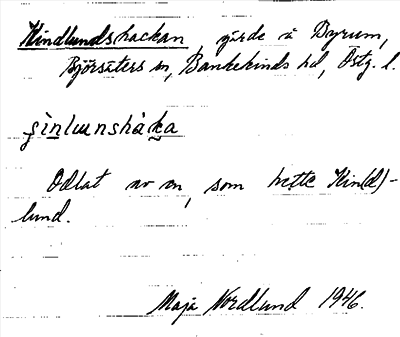 Kindlundshackan, gärde å Byrum,
Björsäters sn, Bankekinds hd, Östg. l.
çìnlunshàka
Odlat av en, som hette Kin(d)-
lund.
Maja Nordlund 1946.